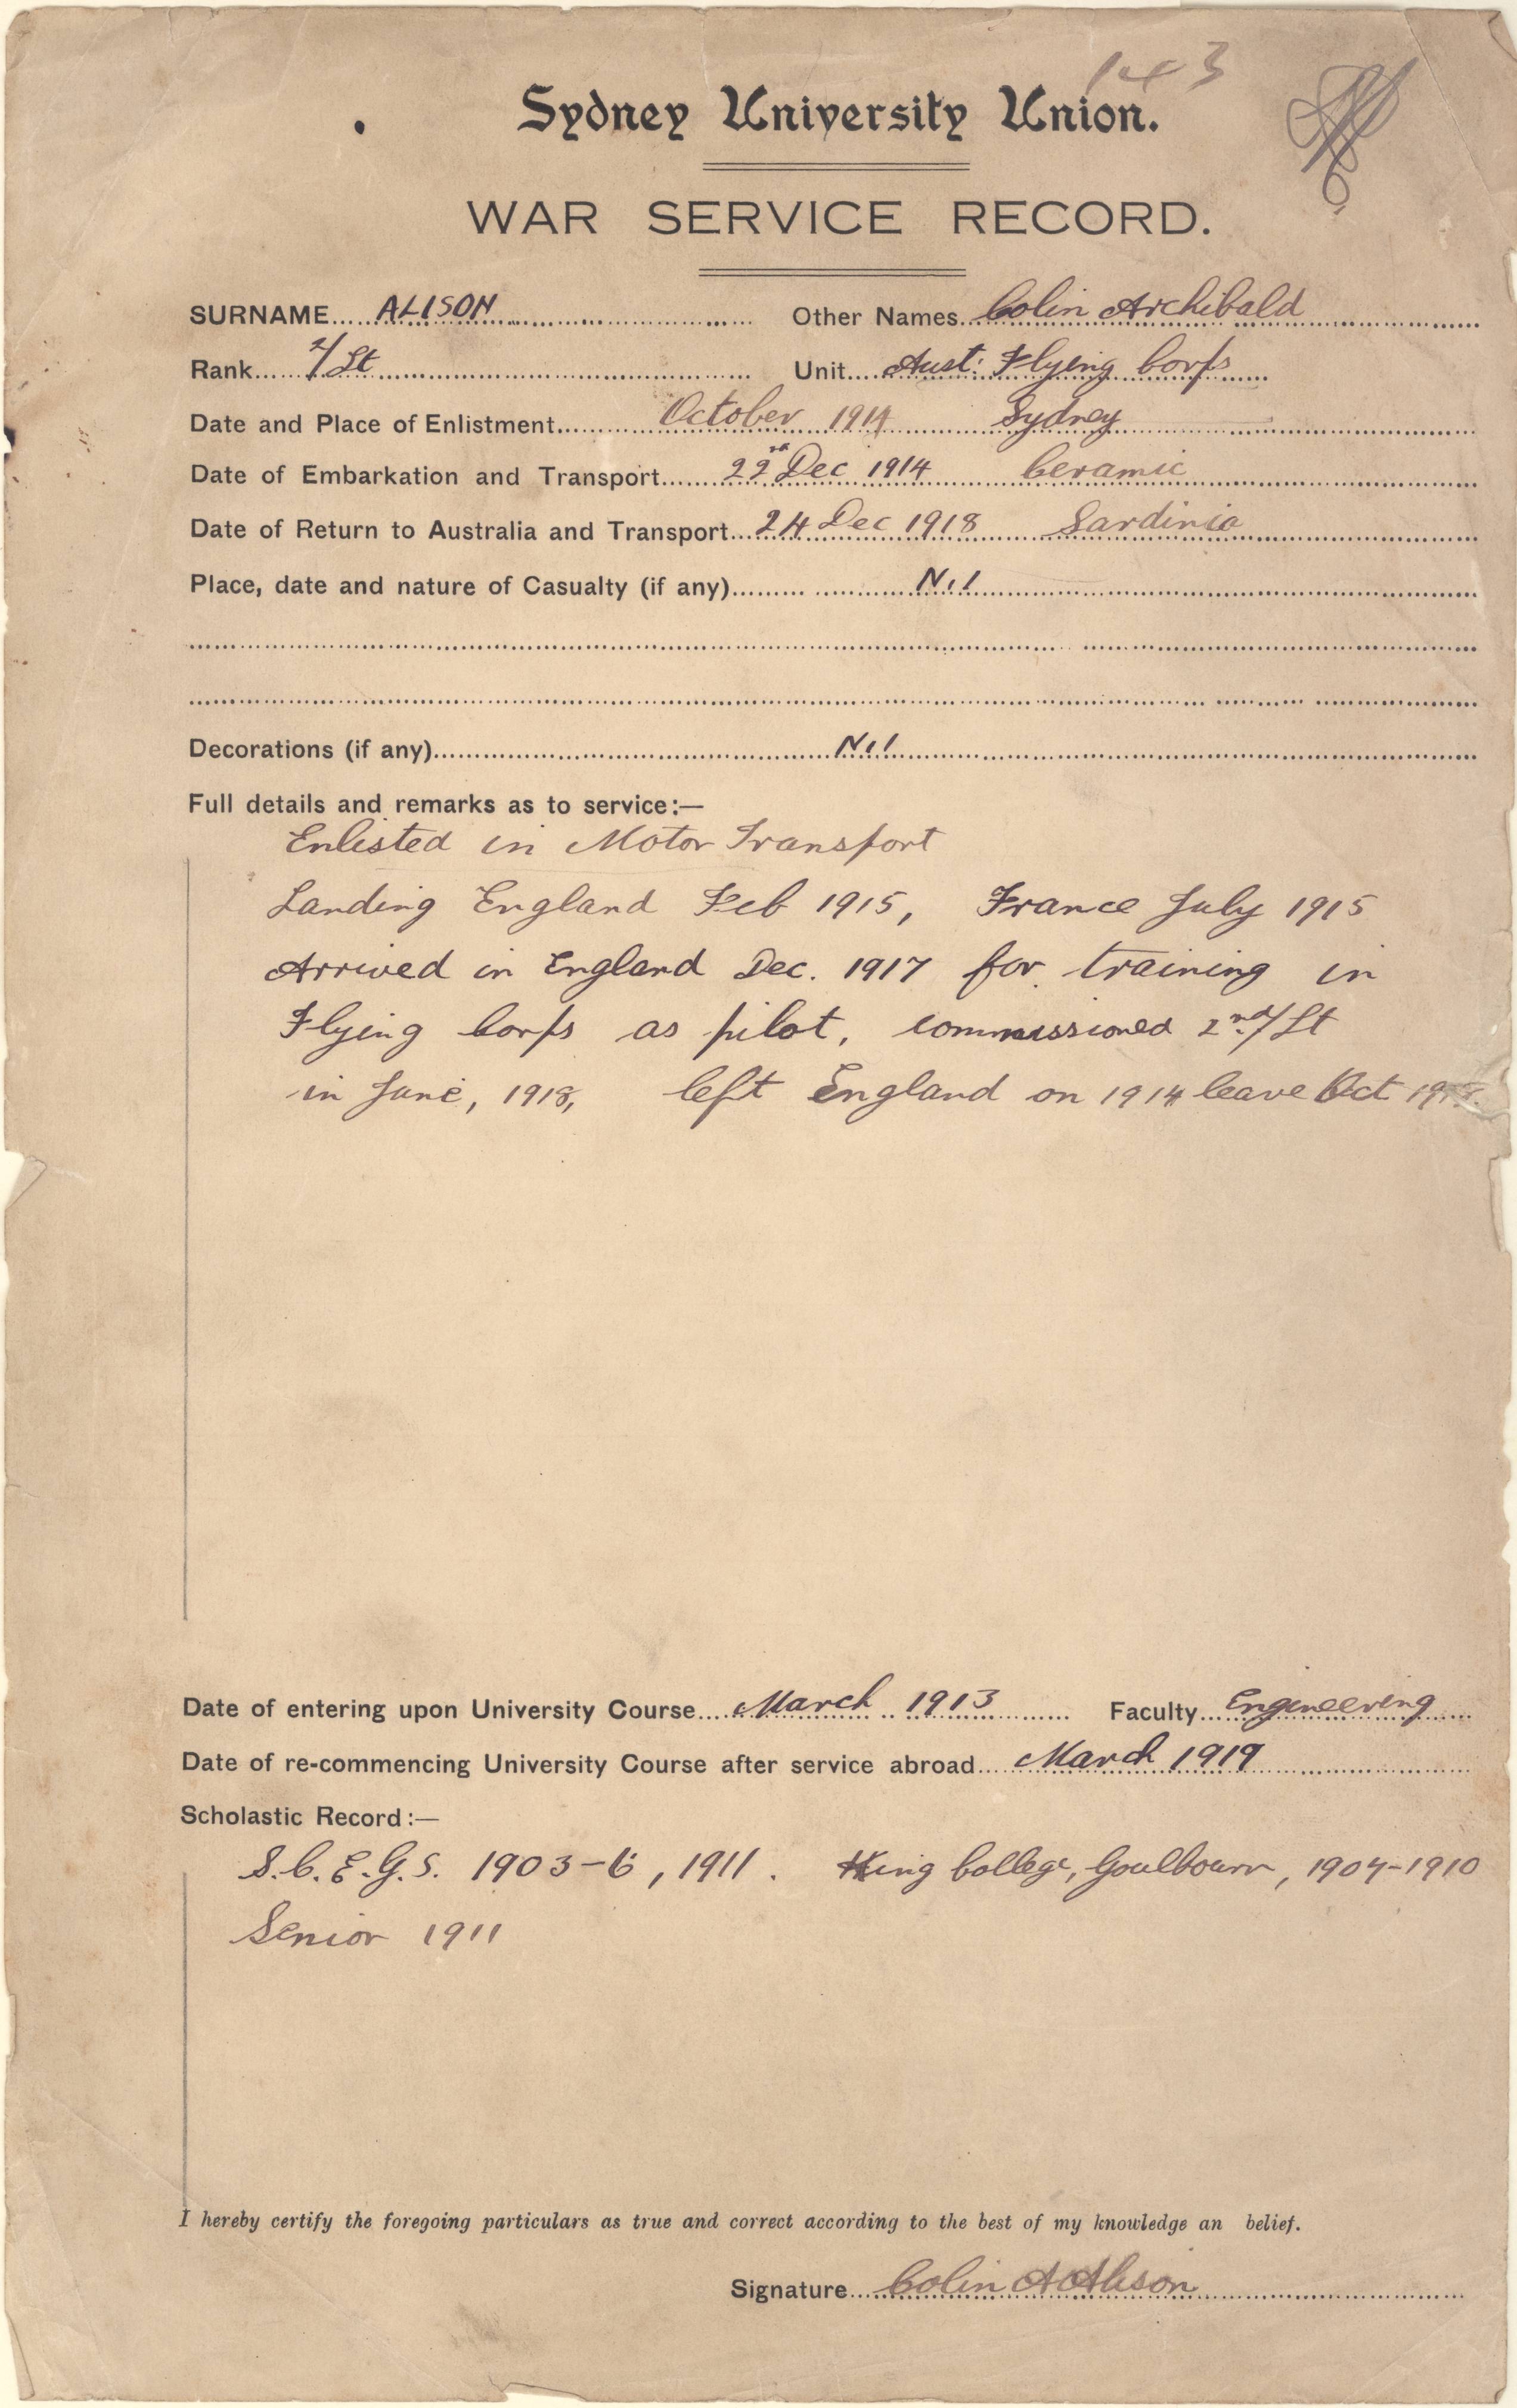 143
Sydney University Union.
WAR SERVICE RECORD.
SURNAME ALISON Other Names Colin Archibald
Rank 2/Lt Unit Aust. Flying Corps
Date and Place of Enlistment October 1914 Sydney
Date of Embarkation and Transport 22nd Dec 1914 Ceramic
Date of Return to Australia and Transport 24 Dec 1918 Sardinia
Place, date and nature of Casualty (if any) Nil
Decorations (if any) Nil
Full details and remarks as to service:—
Enlisted in Motor Transport
Landing England Feb 1915, France July 1915
Arrived in England Dec. 1917 for training in
Flying Corps as pilot, commissioned 2nd/Lt
in June, 1918, left England on 1914 leave Oct
Date of entering upon University Course March 1913 Faculty Engineering
Date of re-commencing University Course after service abroad March 1919
Scholastic Record:—
S.C.E.G.S. 1903-6, 1911. King College, Goulbourn, 1907-1910
Senior 1911
I hereby certify the foregoing particulars as true and correct according to the best of my knowledge an belief.
Signature Colin A Alison